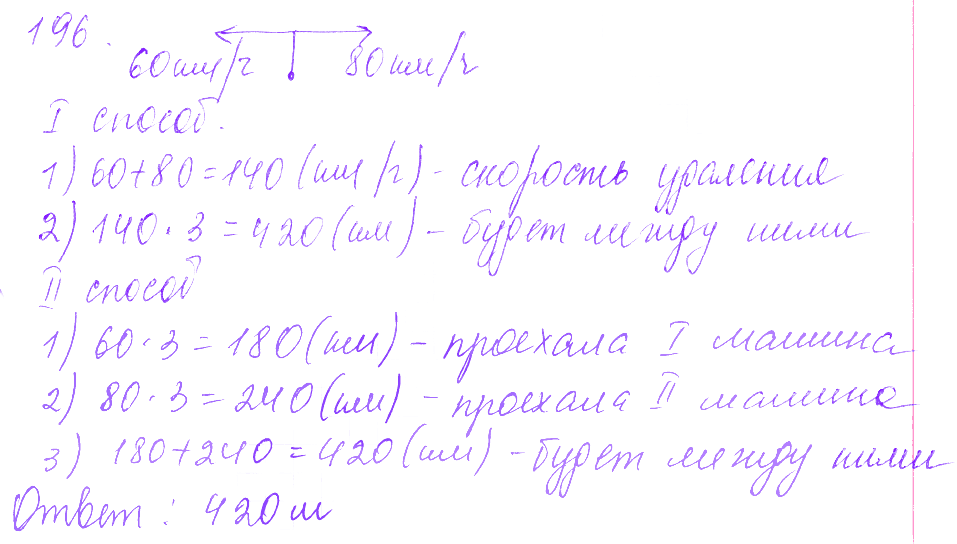 196.
60км/ч 80км/ч
I способ.
1) 60+80=140(км/ч) - скорость удаления
2) 140·3=420(км) - будет между ними
II способ
1) 60·3=180(км) - проехала I машина
2) 80·3=240(км) - проехала II машина
3) 180+240=420(км) - будет между ними
Ответ: 420м